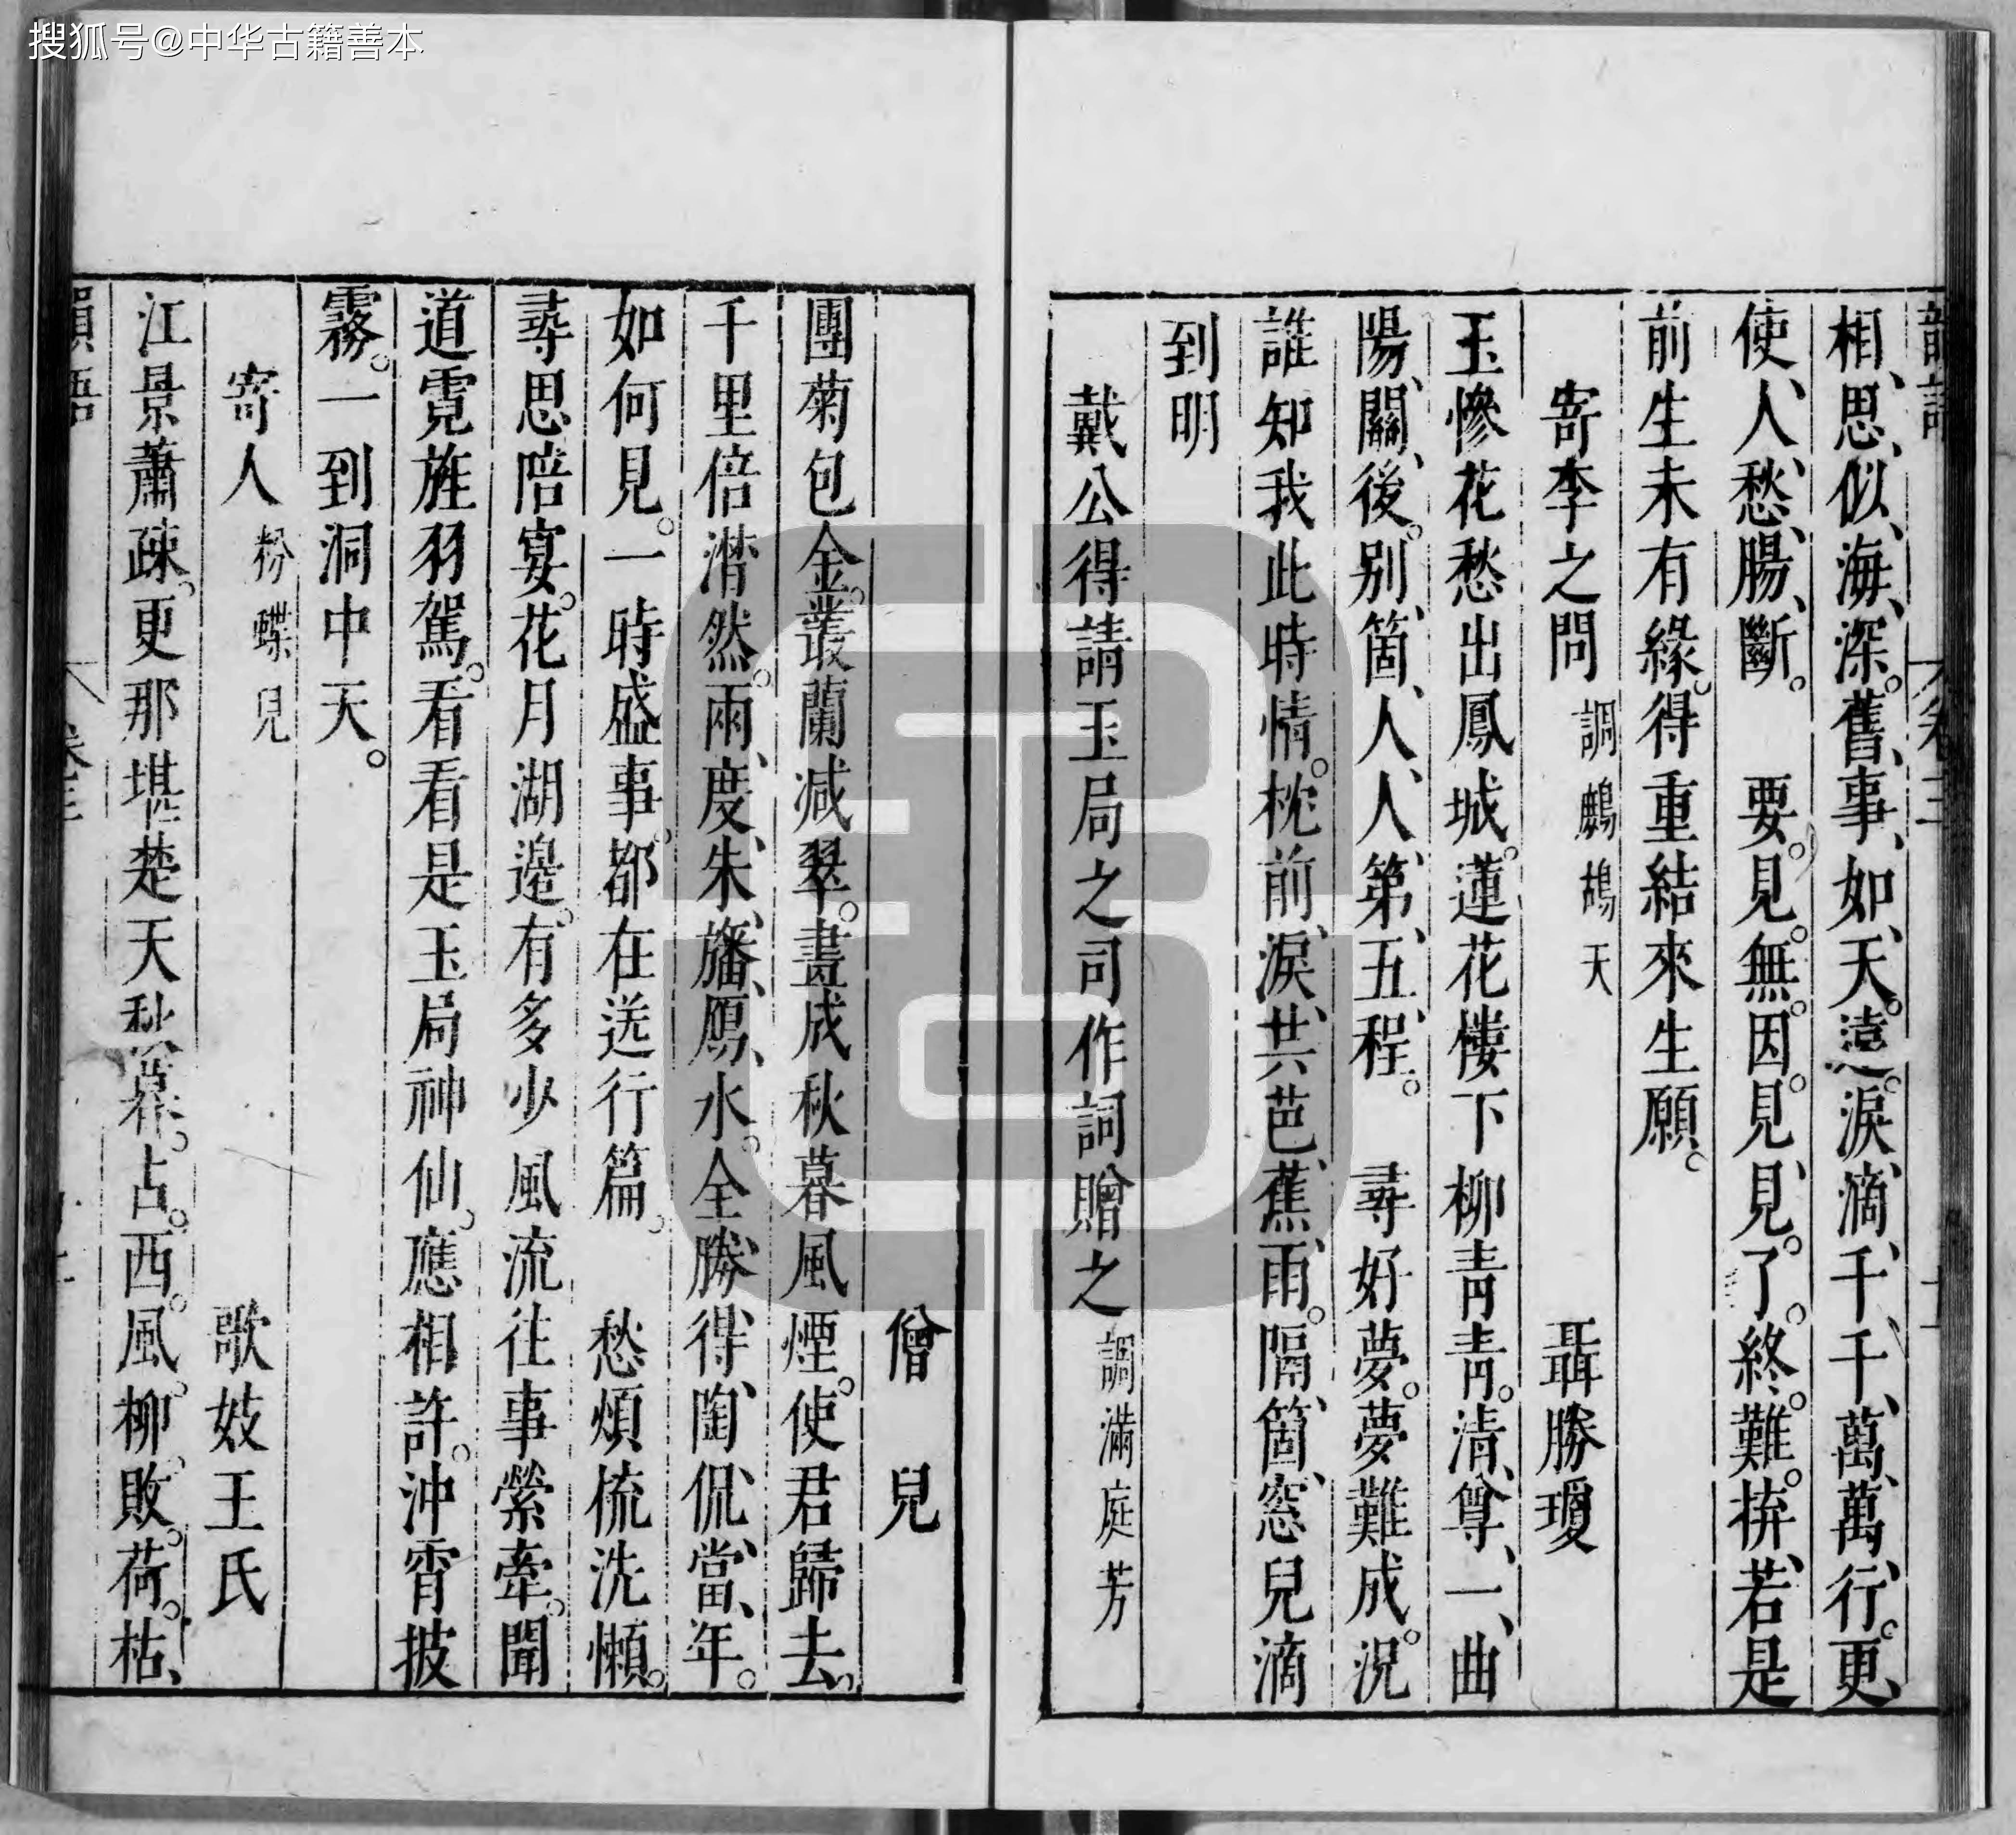 搜狐号@中华古籍善本
相思似海深舊事如天遠淚滴千千萬萬行更
使人愁腸斷 要見無因見見了終難拚若是
前生未有緣得重結來生願
寄李之問 調鷓鴣天 聶勝瓊
玉慘花愁出鳳城蓮花樓下柳青青清尊一曲
陽關後別箇人人第五程 尋好夢夢難成況
誰知我此時情枕前淚共芭蕉雨隔箇窓兒滴
到明
戴公得請玉局之司作詞贈之 調滿庭芳
僧兒
團菊包金叢蘭減翠畫成秋暮風煙使君歸去
千里倍潸然兩度朱旛鴈水全勝得陶侃當年
如何見一時盛事都在送行篇 愁煩梳洗懶
尋思陪宴花月湖邊有多少風流往事縈牽聞
道霓旌羽駕看看是玉局神仙應相許沖霄披
霧一到洞中天
寄人 粉蝶兒 歌妓王氏
江景蕭疎更那堪楚天秋暮占西風柳敗荷枯
韻語 卷三